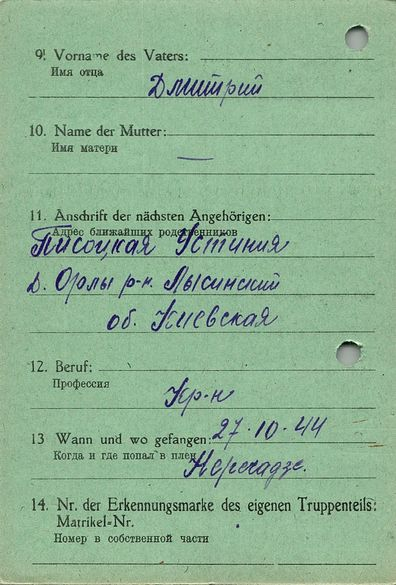 9. Vorname des Vaters:
Имя отца
Дмитрий
10. Name der Mutter:
Имя матери
—
11. Anschrift der nächsten Angehörigen:
Адрес ближайших родственников
Писоцкая Устиния
д. Орлы р-н. Лысинский
об. Киевская
12. Beruf:
Профессия
Кр-н
13 Wann und wo gefangen: 27·10·44
Когда и где попал в плен
14. Nr. der Erkennungsmarke des eigenen Truppenteils:
Matrikel-Nr.
Номер в собственной части